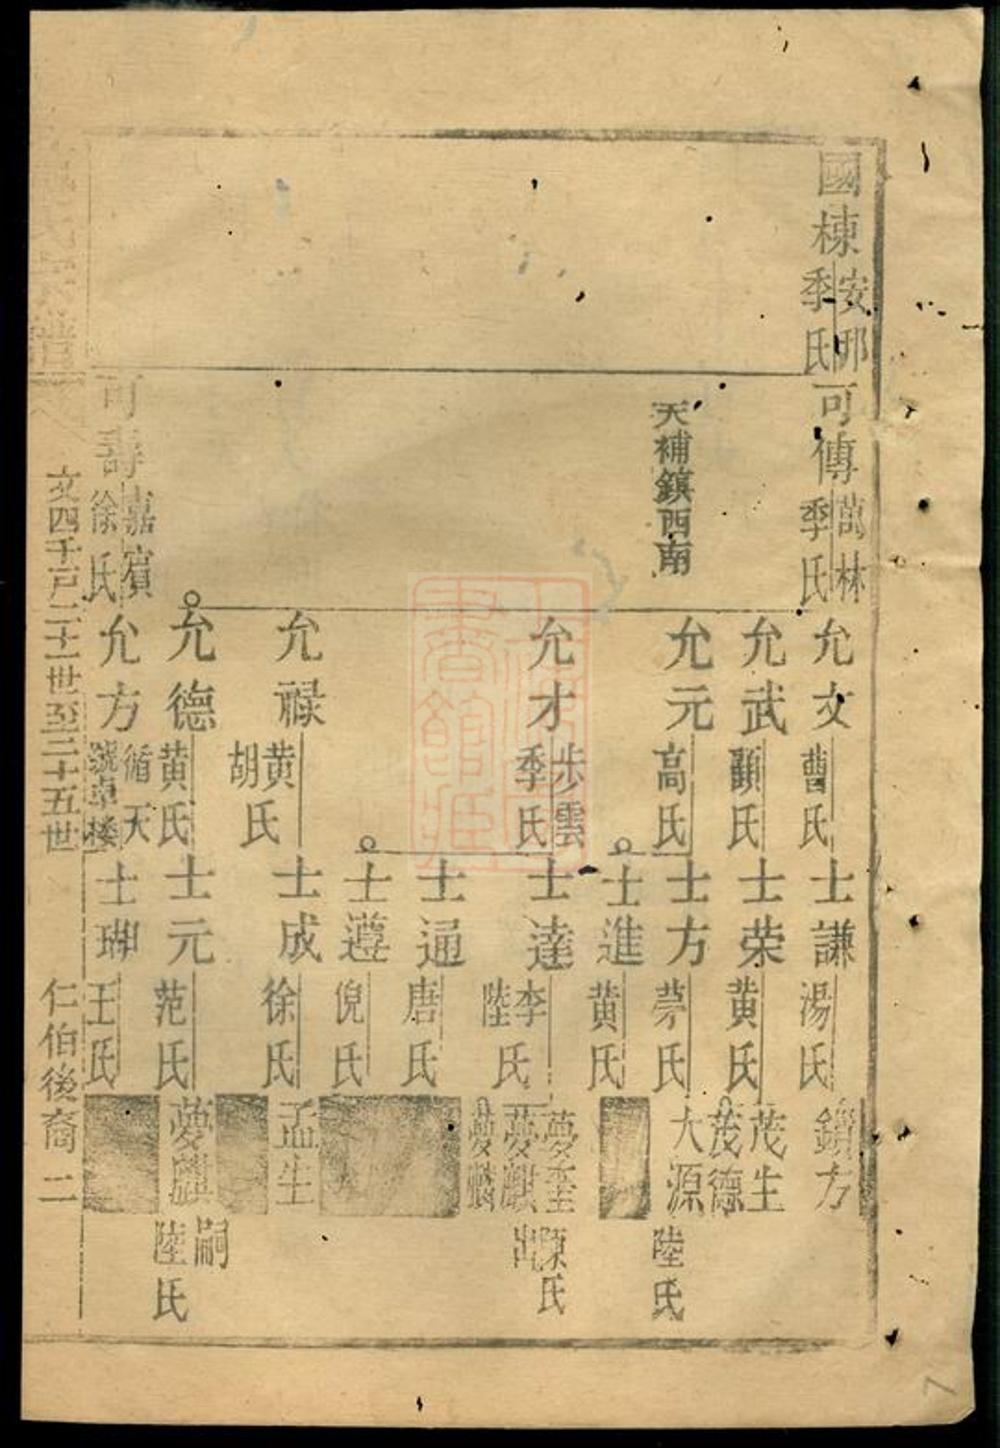 國棟
安邦
季氏
可傳
萬林
季氏
天補鎮西南
允文
曹氏
士謙
湯氏
鎮方
允武
顧氏
士荣
黄氏
茂生
茂德
允元
高氏
士方
茅氏
大源
陸氏
士進
黄氏
允才
步雲
季氏
士達
李
陸
氏
夢奎
陳氏
夢麒
出
夢麟
士通
唐氏
士遵
倪氏
允禄
黄
胡
氏
士成
徐氏
孟生
允德
黄氏
士元
范氏
夢麒
嗣
陸氏
可壽
嘉賓
徐氏
允方
循天
號卓楼
士珊
王氏
譜
文四千戸二十一世至二十五世
仁伯後裔 二